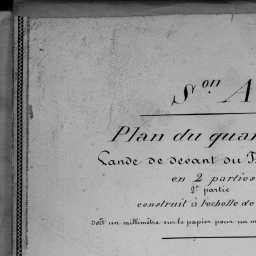 Son A
Plan du quar
Lande de devant du
en 2 parties
2e partie
construit à l'échelle de
doit un millimètre sur le papier pour un m